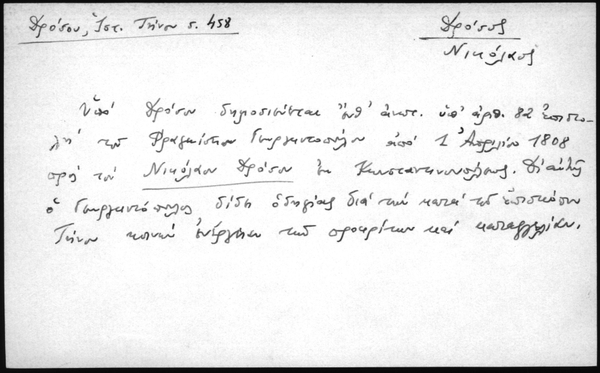 Δρόσου, Ἱστ. Τήνου σ. 458
Δρόσος
Νικόλαος
Ὑπό Δρόσου δημοσιεύεται ὑπ' ἀριθ. 82 ἐπιστο-
λή τοῦ Φραγκίσκου Γεωργαντοπούλου ἀπό 1 Ἀπριλίου 1808
πρός τόν Νικόλαον Δρόσον ἐν Κωνσταντινουπόλει. Δι' αὐτῆς
ὁ Γεωργαντόπουλος δίδει ὁδηγίας διά τήν κατά τοῦ ἐπισκόπου
Τήνου κοινήν ἐνέργειαν τῶν προκρίτων καί καταγγελίαν.